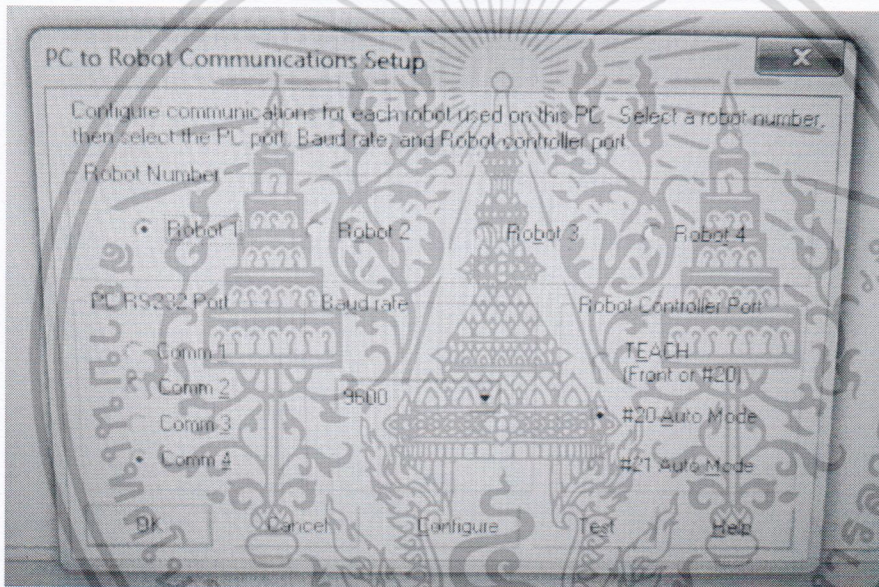 PC to Robot Communications Setup
Configure communications for each robot used on this PC. Select a robot number,
then select the PC port, Baud rate, and Robot controller port
Robot Number
Robot 1 Robot 2 Robot 3 Robot 4
PC RS232 Port Baud rate Robot Controller Port
Comm 1
Comm 2
Comm 3
Comm 4
9600
TEACH
(Front or #20)
#20 Auto Mode
#21 Auto Mode
OK Cancel Configure Test Help